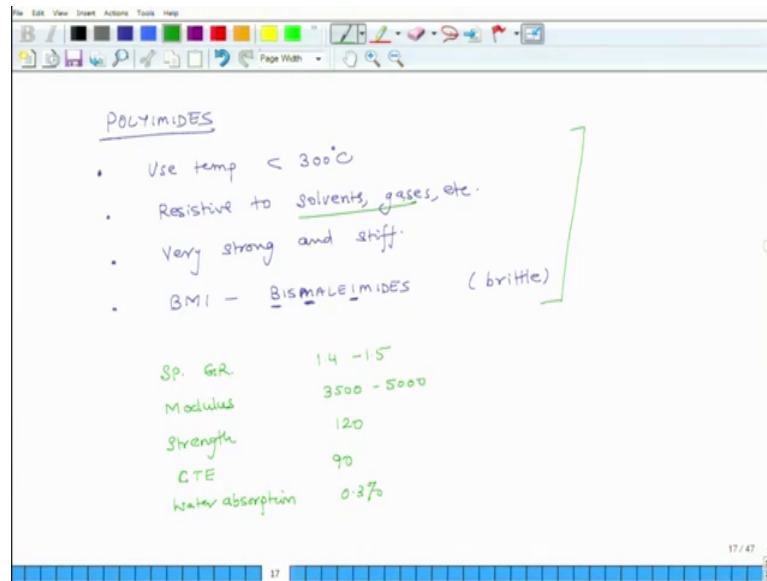 File Edit View Insert Actions Tools Help
B I
Page Width
POLYIMIDES
• Use temp < 300°C
• Resistive to solvents, gases, etc.
• Very strong and stiff.
• BMI - BISMALEIMIDES (brittle)
SP. GR. 1.4 - 1.5
Modulus 3500 - 5000
Strength 120
CTE 90
Water absorption 0.3%
17 / 47
17